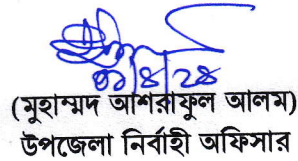 ০৯/৪/২৪
(মুহাম্মদ আশরাফুল আলম)
উপজেলা নির্বাহী অফিসার